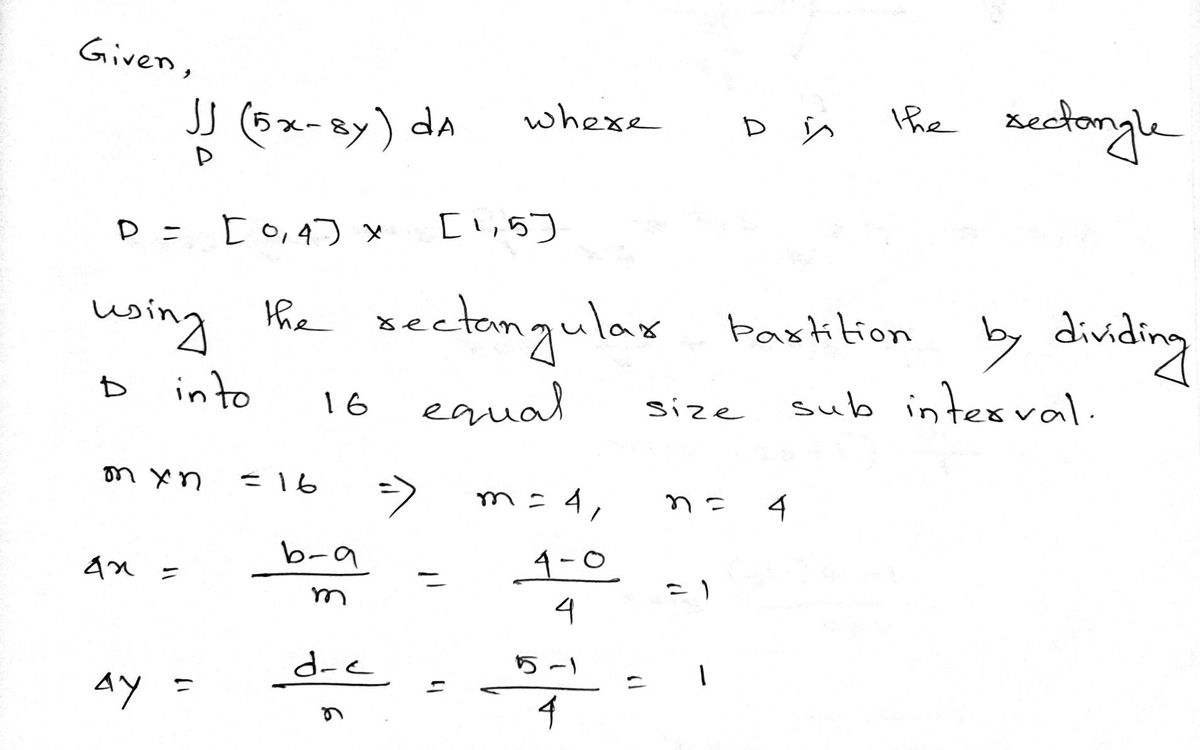 Given,
∬ (5x-8y) dA where D is the rectangle
D
D = [0,4] x [1,5]
using the rectangular partition by dividing
D into 16 equal size sub interval.
m x n = 16 => m = 4, n = 4
Δx = b-a/m = 4-0/4 = 1
Δy = d-c/n = 5-1/4 = 1